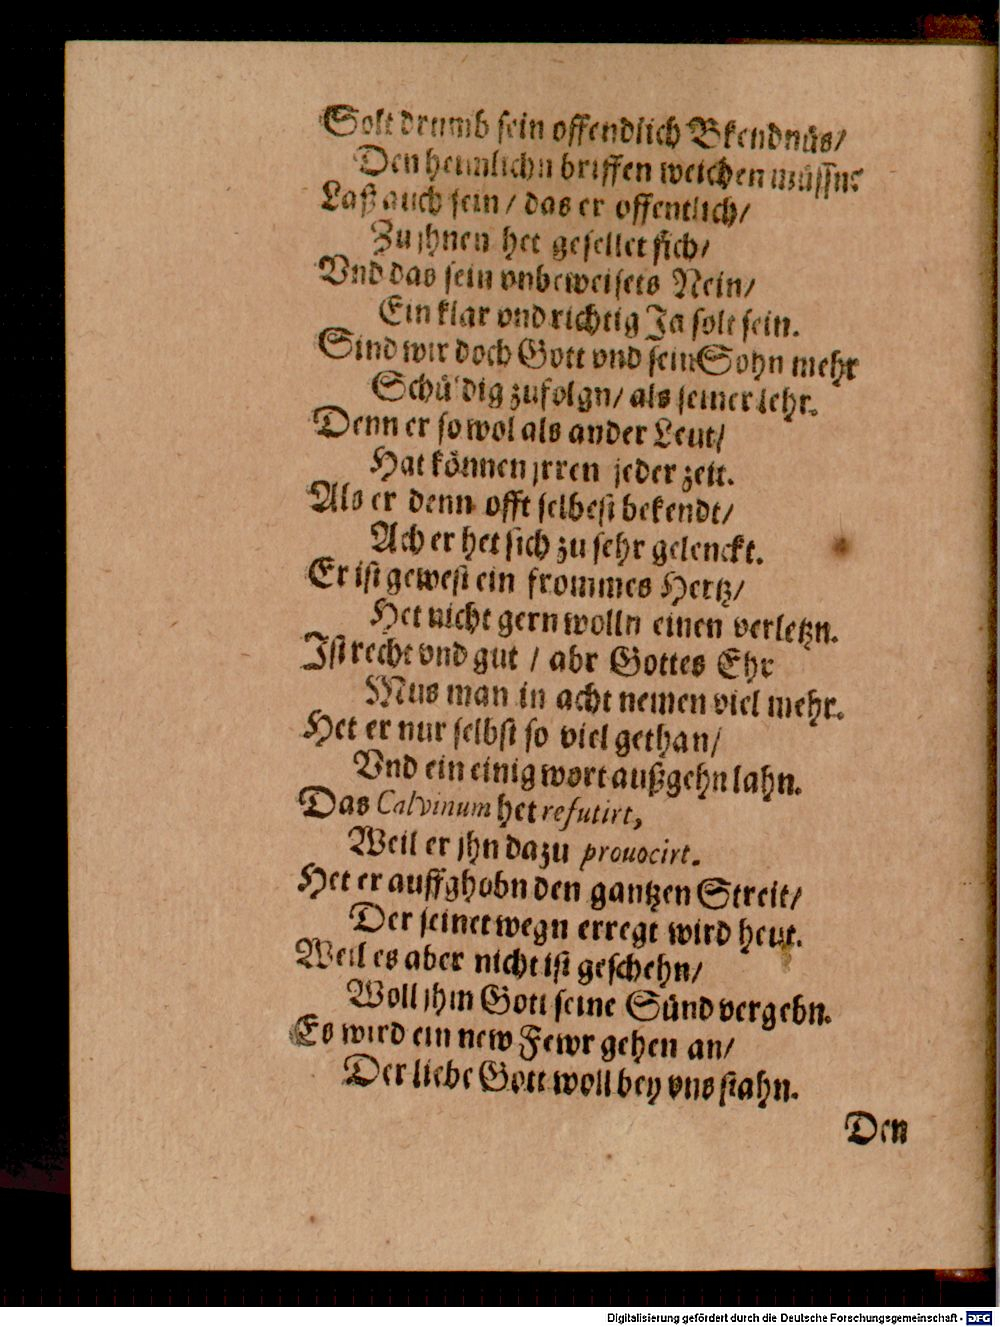 Solt drumb sein offendlich Bkendnüs/
Den heimlichn briffen weichen müssn?
Laß auch sein/ das er offentlich/
Zu jhnen het gesellet sich/
Vnd das sein vnbeweisets Nein/
Ein klar vnd richtig Ja solt sein.
Sind wir doch Gott vnd sein Sohn mehr
Schüldig zufolgn/ als seiner lehr.
Denn er so wol als ander Leut/
Hat können jrren jeder zeit.
Als er denn offt selbest bekendt/
Ach er het sich zu sehr gelenckt.
Er ist gewest ein frommes Hertz/
Het nicht gern wolln einen verletzn.
Ist recht vnd gut / abr Gottes Ehr
Mus man in acht nemen viel mehr.
Het er nur selbst so viel gethan/
Vnd ein einig wort außgehn lahn.
Das Calvinum het refutirt,
Weil er jhn dazu prouocirt.
Het er auffghobn den gantzen Streit/
Der seinetwegn erregt wird heut.
Weil es aber nicht ist geschehn/
Woll jhm Gott seine Sünd vergebn.
Es wird ein new Fewr gehen an/
Der liebe Gott woll bey vns stahn.
Den
Digitalisierung gefördert durch die Deutsche Forschungsgemeinschaft - DFG